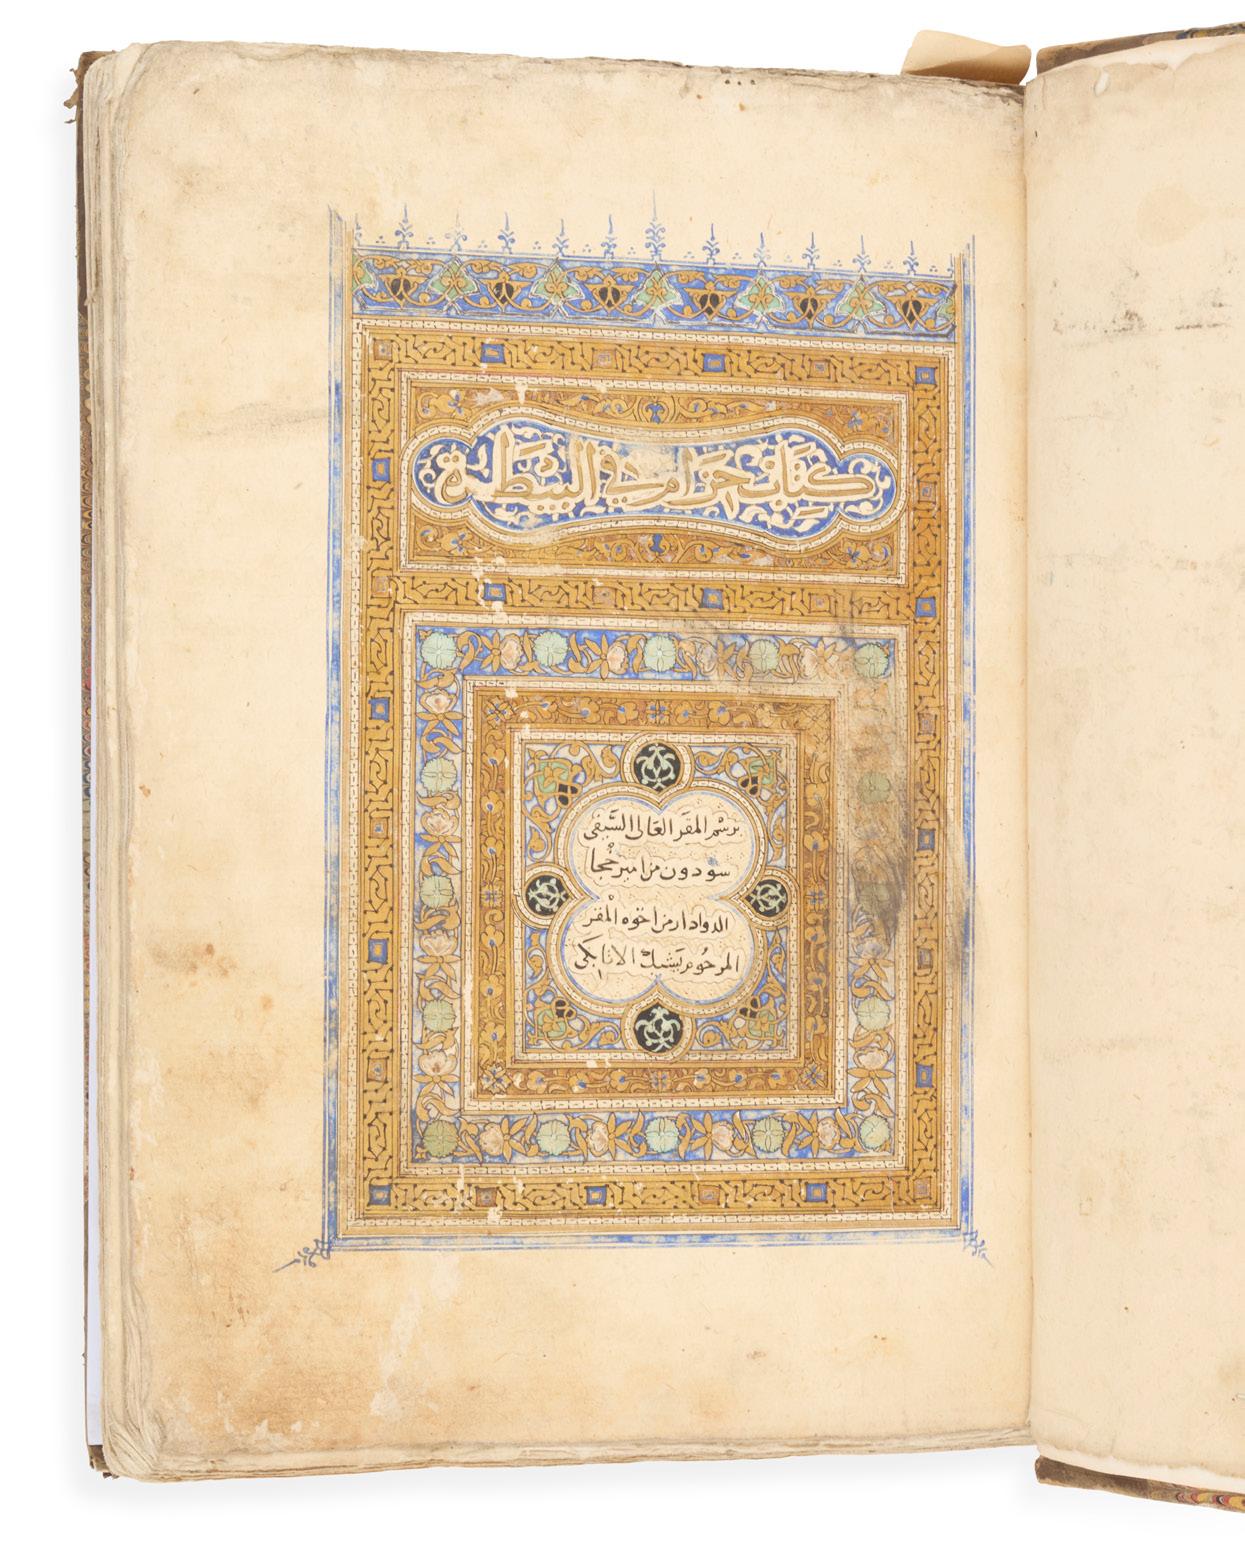 كتاب في البيطرة
برَسْم المقَر العَالى السَّيفى
سودون من امير جحا
الدوادار من اخوه المقر
المرحُوم يَشبك الاتابكى